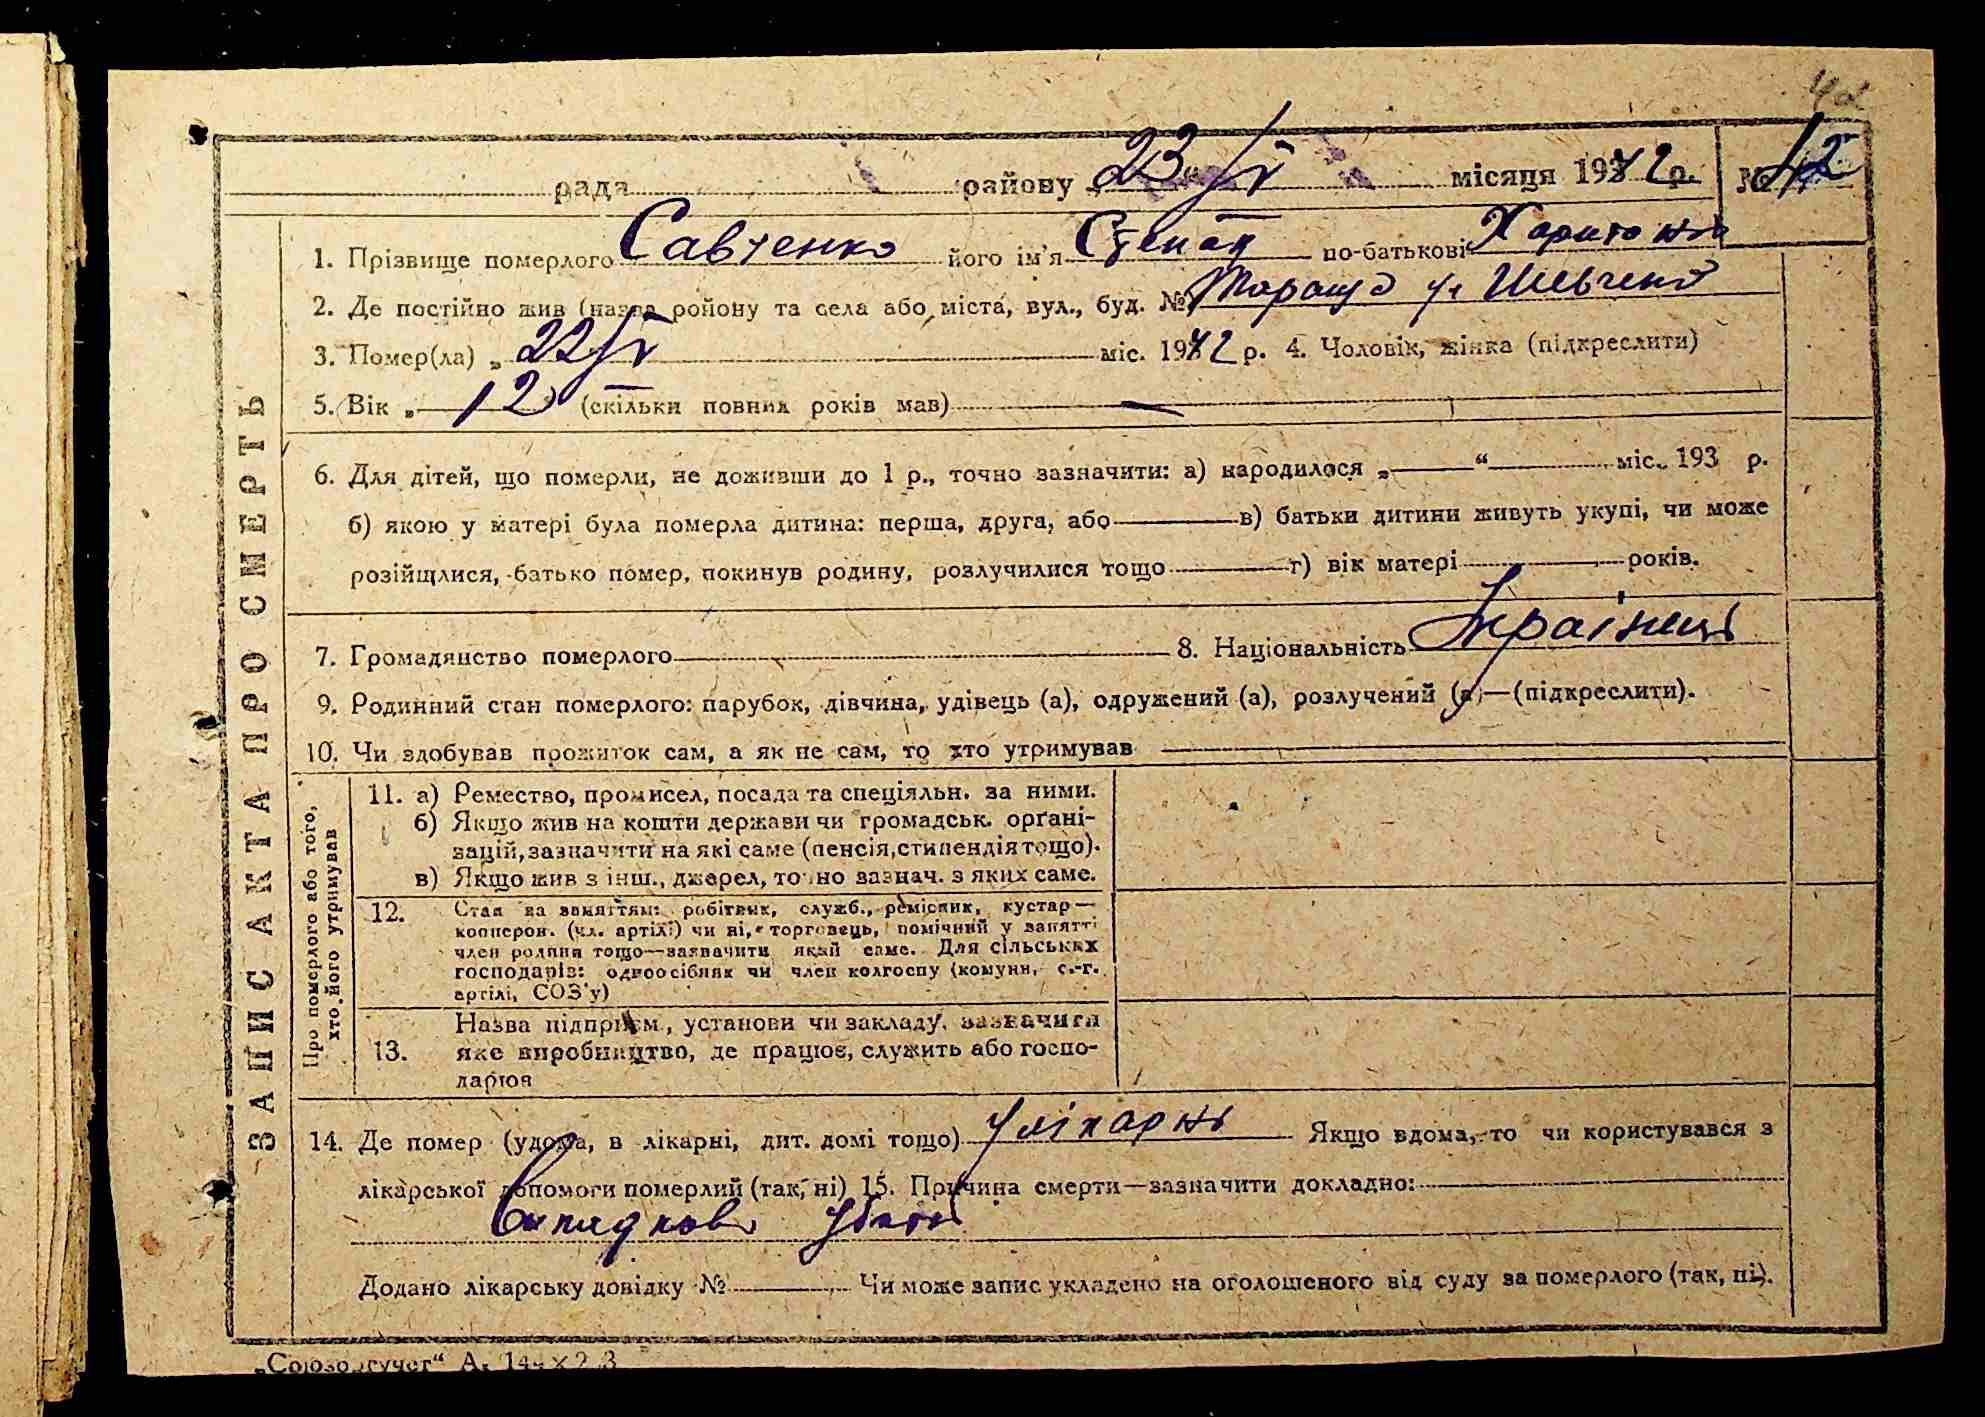 42
рада районом 23/IV місяця 1942 р. № 42
1. Прізвище померлого Савченко його ім'я Степан по-батькові Харитонов
2. Де постійно жив (назва району та села або міста, вул., буд. № Тараща ул Шевченка
3. Помер(ла) „ 22/IV міс. 1942 р. 4. Чоловік, жінка (підкреслити)
5. Вік „ 12 (скільки повних років мав) —
6. Для дітей, що померли, не доживши до 1 р., точно зазначити: а) народилося „—“ міс. 193 р.
б) якою у матері була померла дитина: перша, друга, або — в) батьки дитини живуть укупі, чи може
розійшлися, батько помер, покинув родину, розлучилися тощо — г) вік матері — років.
7. Громадянство померлого — 8. Національність Українець
9. Родинний стан померлого: парубок, дівчина, удівець (а), одружений (а), розлучений (а)—(підкреслити).
10. Чи здобував прожиток сам, а як не сам, то хто утримував —
ЗАПИСКА ПРО СМЕРТЬ
Про померлого або того,
хто його утримував
11. а) Ремество, промисел, посада та спеціяльн. за ними.
б) Якщо жив на кошти держави чи громадськ. орґані-
зацій, зазначити на які саме (пенсія, стипендія тощо).
в) Якщо жив з інш., джерел, точно зазнач. з яких саме.
12. Стан за заняттям: робітник, служб., ремісник, кустар—
кооперов. (чл. артілі) чи ні, торговець, помічний у занятті
член родини тощо—зазначити який саме. Для сільських
господарів: одноосібник чи член колгоспу (комуни, с.-г.
артілі, СОЗ'у)
13. Назва підприєм., установи чи закладу, зазначити
яке виробництво, де працює, служить або госпо-
дарює
14. Де помер (удома, в лікарні, дит. домі тощо) у лікарні Якщо вдома, то чи користувався з
лікарської допомоги померлий (так, ні) 15. Причина смерти—зазначити докладно:
Випадково убитий
Додано лікарську довідку № — Чи може запис укладено на оголошеного від суду за померлого (так, ні).